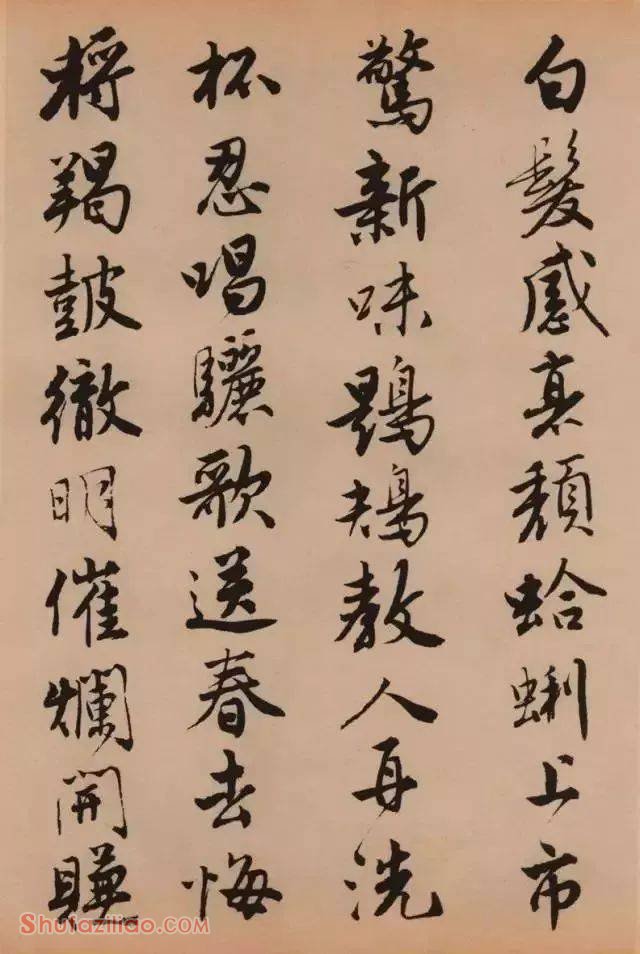 白髮感衰頹蛤蜊上市
驚新味鶗鴂教人再洗
杯忍唱驪歌送春去悔
將羯鼓徹明催爛開賺
Shufaziliao.com